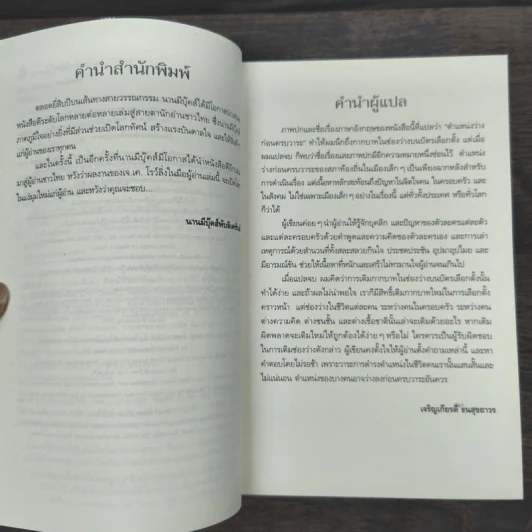 คำนำสำนักพิมพ์
ตลอดยี่สิบปีบนเส้นทางสายวรรณกรรม นานมีบุ๊คส์ได้มีโอกาสนำเสนอ
หนังสือดีระดับโลกหลายต่อหลายเล่มสู่สายตานักอ่านชาวไทย ซึ่งนานมีบุ๊คส์
ภาคภูมิใจอย่างยิ่งที่มีส่วนช่วยเปิดโลกทัศน์ สร้างแรงบันดาลใจ และให้
แก่ผู้อ่านของเราทุกคน
และในครั้งนี้ เป็นอีกครั้งที่นานมีบุ๊คส์มีโอกาสได้นำหนังสือดีอีก
มาสู่ผู้อ่านชาวไทย หวังว่าผลงานของเจ.เค. โรว์ลิ่งในมือผู้อ่านเล่มนี้
ในแง่มุมใหม่แก่ผู้อ่าน และหวังว่าคุณจะชอบ...
นานมีบุ๊คส์ทับลิเคชั่นส์
คำนำผู้แปล
ภาพปกและชื่อเรื่องภาษาอังกฤษของหนังสือนี้ที่แปลว่า "ตำแหน่งว่าง
ก่อนครบวาระ" ทำให้ผมนึกถึงกากบาทในช่องว่างบนบัตรเลือกตั้ง แต่เมื่อ
ผมแปลจบ ก็พบว่าชื่อเรื่องและภาพปกมีอีกความหมายหนึ่งซ่อนไว้ ตำแหน่ง
ว่างก่อนครบวาระของสภาท้องถิ่นในเมืองเล็กๆ เป็นเพียงฉากหลังสำหรับ
การดำเนินเรื่อง แต่เนื้อหาหลักสะท้อนถึงปัญหาในจิตใจคน ในครอบครัว และ
ในสังคม ไม่ใช่เฉพาะเมืองเล็กๆ อย่างในเรื่องนี้ แต่ทั่วทั้งประเทศ หรือทั่วโลก
ก็ว่าได้
ผู้เขียนค่อยๆ นำผู้อ่านให้รู้จักบุคลิก และปัญหาของตัวละครแต่ละตัว
และแต่ละครอบครัวด้วยคำพูดและความคิดของตัวละครเอง และการเล่า
เหตุการณ์ด้วยสำนวนที่ทั้งสละสลวยกินใจ ประชดประชัน อุปมาอุปไมย และ
มีอารมณ์ขัน ช่วยให้เนื้อหาที่หนักและเศร้าไม่ทรมานใจผู้อ่านจนเกินไป
เมื่อแปลจบ ผมคิดว่าการเติมกากบาทในช่องว่างบนบัตรเลือกตั้งนั้น
ทำได้ง่าย และถ้าผลไม่น่าพอใจ เราก็มีสิทธิ์เติมกากบาทใหม่ในการเลือกตั้ง
คราวหน้า แต่ช่องว่างในชีวิตแต่ละคน ระหว่างคนในครอบครัว ระหว่างคน
ต่างความคิด ต่างชนชั้น และต่างเชื้อชาตินั้นเล่าจะเติมด้วยอะไร หากเติม
ผิดพลาดจะเติมใหม่ให้ถูกต้องได้ง่ายๆ หรือไม่ ใครควรเป็นผู้รับผิดชอบ
ในการเติมช่องว่างดังกล่าว ผู้เขียนคงตั้งใจให้ผู้อ่านตั้งคำถามเหล่านี้ และหา
คำตอบโดยไม่รอช้า เพราะวาระการดำรงตำแหน่งในชีวิตคนเรานั้นแสนสั้นและ
ไม่แน่นอน ตำแหน่งของบางคนอาจว่างลงก่อนครบวาระอันควร
เจริญเกียรติ ธนสุขถาวร